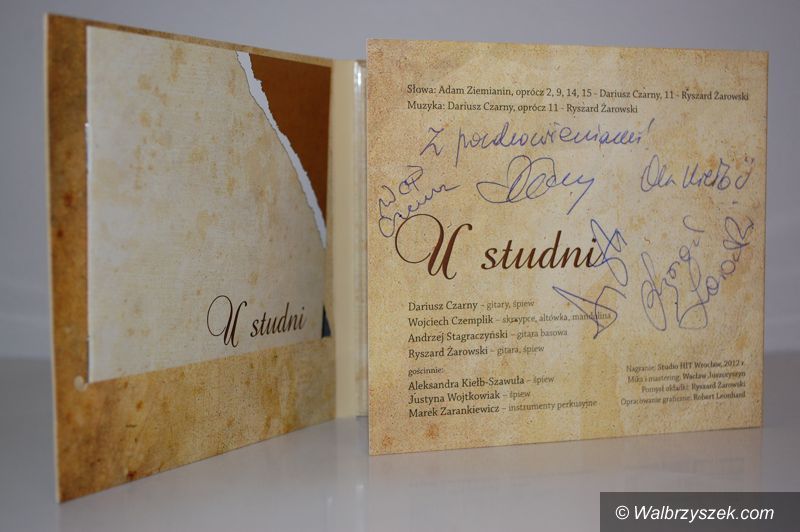 U studni
Słowa: Adam Ziemianin, oprócz 2, 9, 14, 15 - Dariusz Czarny, 11 - Ryszard Żarowski
Muzyka: Dariusz Czarny, oprócz 11 - Ryszard Żarowski
Z pozdrowieniami!
U studni
Dariusz Czarny – gitary, śpiew
Wojciech Czemplik – skrzypce, altówka, mandolina
Andrzej Stagraczyński – gitara basowa
Ryszard Żarowski – gitara, śpiew
gościnnie:
Aleksandra Kiełb-Szawuła – śpiew
Justyna Wojtkowiak – śpiew
Marek Zarankiewicz – instrumenty perkusyjne
Nagranie: Studio HIT Wrocław, 2012 r.
Miks i mastering: Wacław Juszczyszyn
Pomysł okładki: Ryszard Żarowski
Opracowanie graficzne: Robert Leonhard
© Walbrzyszek.com